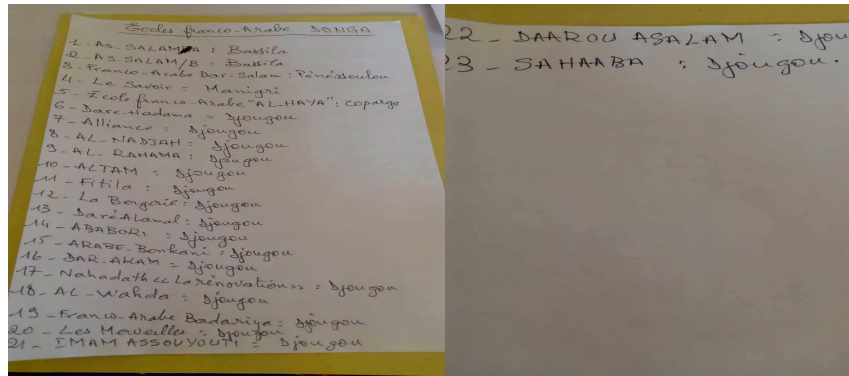 Ecoles franco-Arabe DONGA
1 - AS-SALAM/A : Bassila
2 - AS-SALAM/B : Bassila
3 - Franco-Arabe Dar-Salam : Pénéssoulou
4 - Le Savoir = Manigri
5 - Ecole franco-Arabe "AL-HAYA" : Copargo
6 - Dare Hadama = Djougou
7 - Alliance : Djougou
8 - AL-NADJAH : Djougou
9 - AL-RAHAMA : Djougou
10 - ALTAM : Djougou
11 - Fitila : Djougou
12 - La Bergerie : Djougou
13 - Daré Alamal : Djougou
14 - ABABORI = Djougou
15 - ARABE-Bonkani : Djougou
16 - DAR-AKAM = Djougou
17 - Nahadath << La rénovation >> : Djougou
18 - AL-Wahda : Djougou
19 - Franco-Arabe Badariya : Djougou
20 - Les Merveilles : Djougou
21 - IMAM ASSOUYOUTI = Djougou
22 - DAAROU ASALAM = Djou
23 - SAHAABA : Djougou.